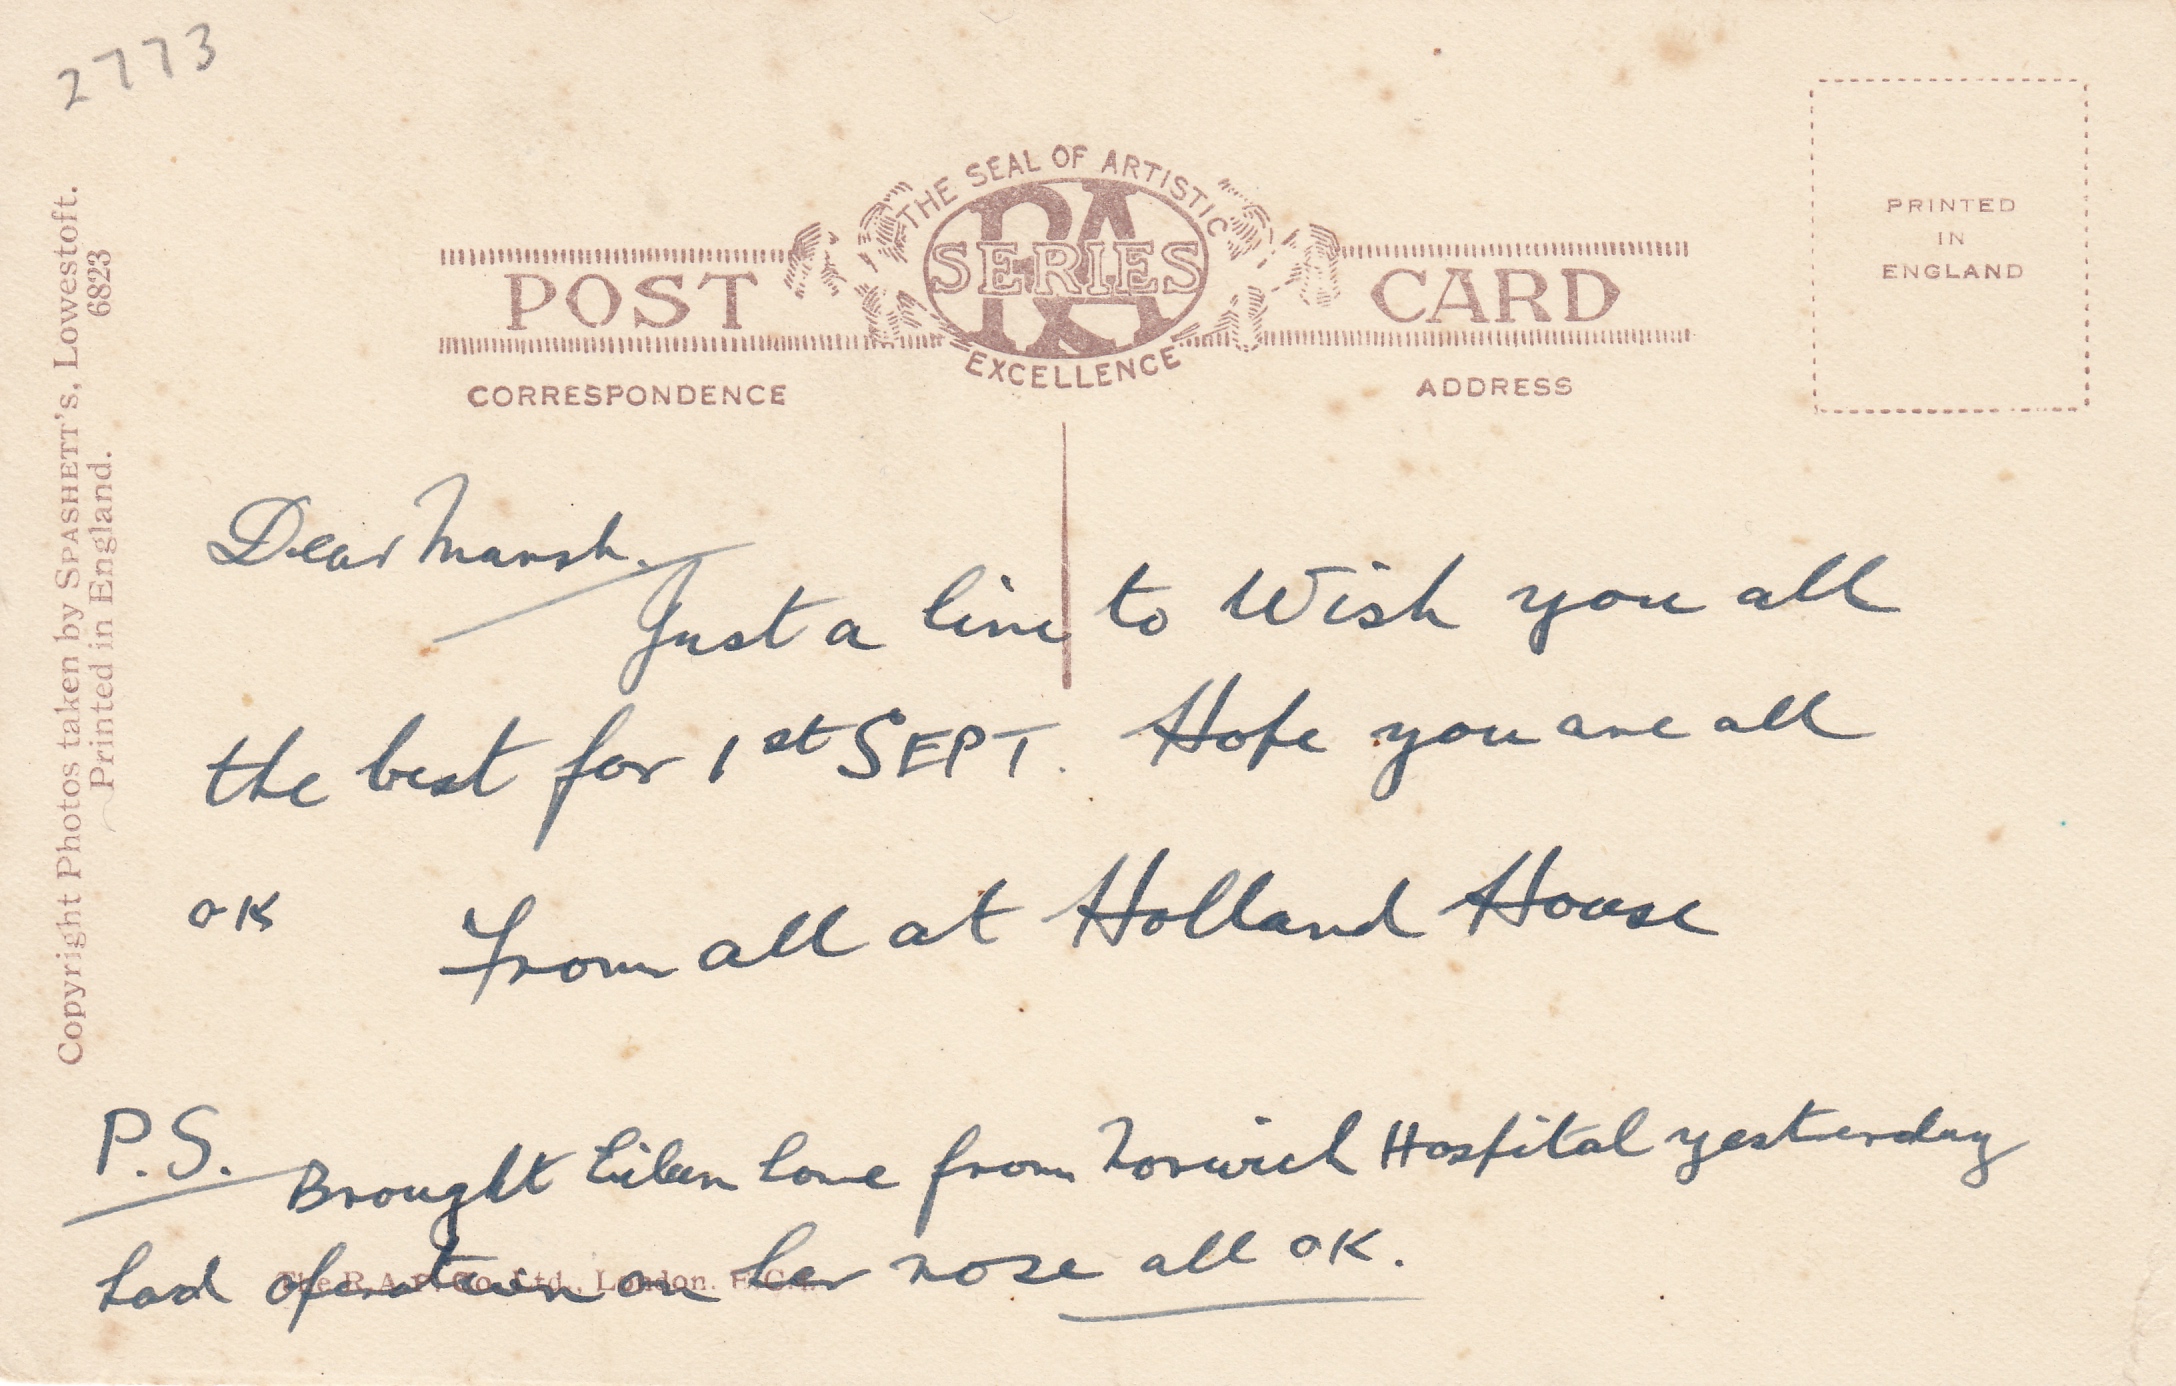 2773
THE SEAL OF ARTISTIC
RA
SERIES
EXCELLENCE
POST CARD
CORRESPONDENCE
ADDRESS
PRINTED
IN
ENGLAND
Copyright Photos taken by SPASHETT's, Lowestoft.
Printed in England. 6823
Dear Marsh.
Just a line to Wish you all
the best for 1st SEPT. Hope you are all
OK From all at Holland House
P.S. Brought Eileen home from Norwich Hospital yesterday
had operation on her nose all OK.
The R.A. Co. Ltd., London. E.C.